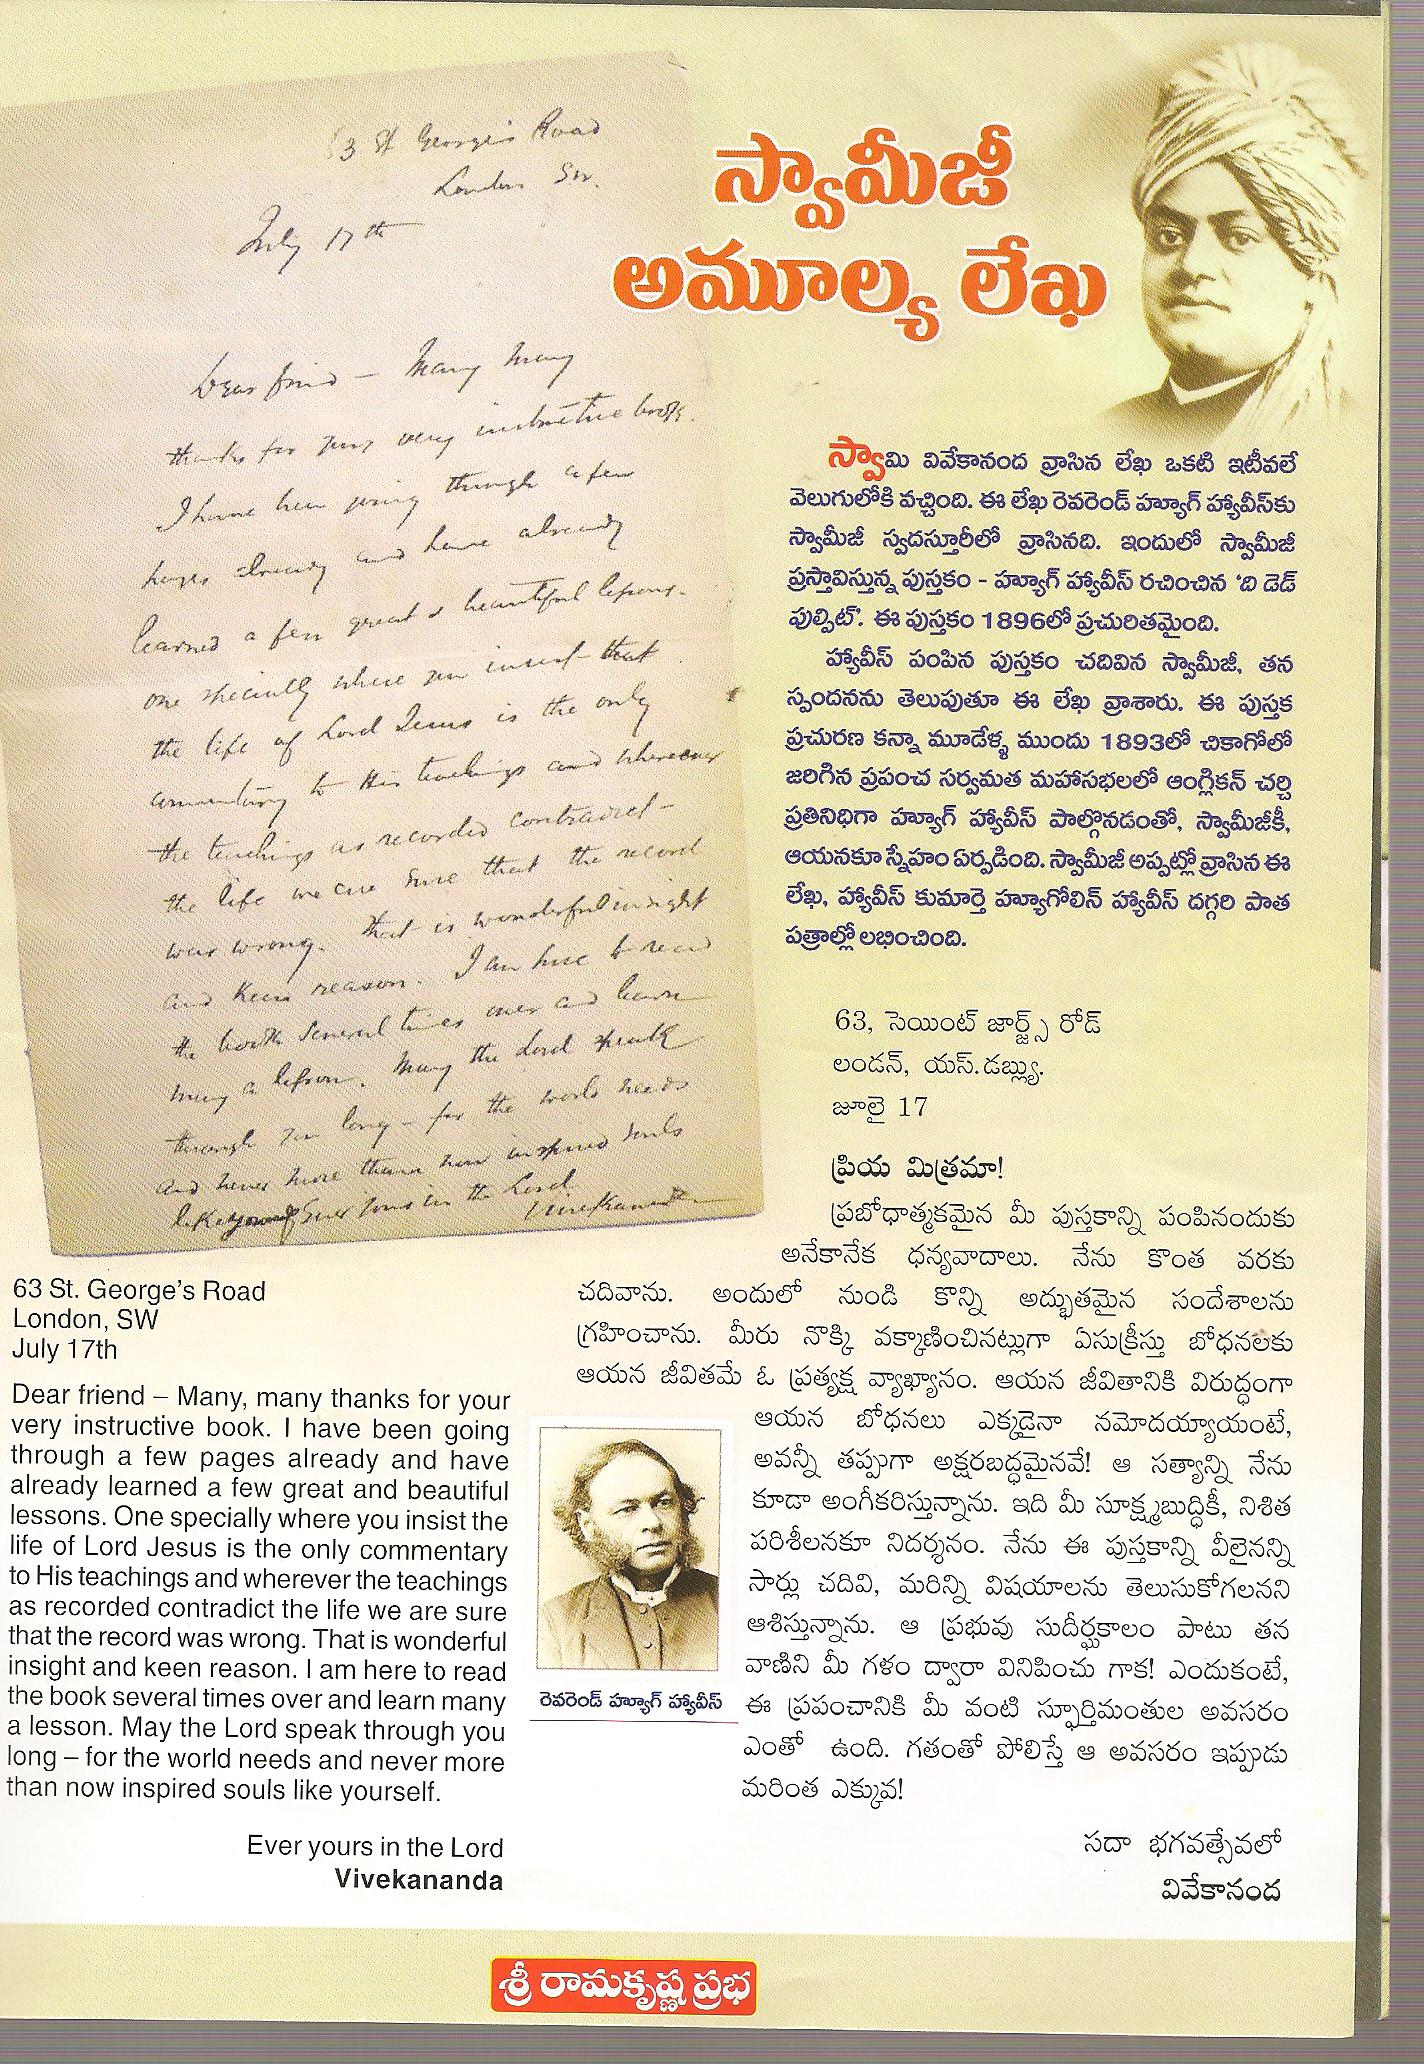 63 St George's Road
London SW.
July 17th
Dear friend – Many many
thanks for your very instructive book.
I have been going through a few
pages already and have already
learned a few great & beautiful lessons.
one specially where you insist that
the life of Lord Jesus is the only
commentary to His teachings and wherever
the teachings as recorded contradict
the life we are sure that the record
was wrong. That is wonderful insight
and keen reason. I am here to read
the book several times over and learn
many a lesson. May the Lord speak
through you long – for the world needs
and never more than now inspired souls
like yourself Ever yours in the Lord
Vivekananda
స్వామీజీ
అమూల్య లేఖ
స్వామి వివేకానంద వ్రాసిన లేఖ ఒకటి ఇటీవలే
వెలుగులోకి వచ్చింది. ఈ లేఖ రెవరెండ్ హ్యూగ్ హ్యావీస్‌కు
స్వామీజీ స్వదస్తూరీలో వ్రాసినది. ఇందులో స్వామీజీ
ప్రస్తావిస్తున్న పుస్తకం - హ్యూగ్ హ్యావీస్ రచించిన ‘ది డెడ్
ఫుల్పిట్’. ఈ పుస్తకం 1896లో ప్రచురితమైంది.
హ్యావీస్ పంపిన పుస్తకం చదివిన స్వామీజీ, తన
స్పందనను తెలుపుతూ ఈ లేఖ వ్రాశారు. ఈ పుస్తక
ప్రచురణ కన్నా మూడేళ్ళ ముందు 1893లో చికాగోలో
జరిగిన ప్రపంచ సర్వమత మహాసభలలో ఆంగ్లికన్ చర్చి
ప్రతినిధిగా హ్యూగ్ హ్యావీస్ పాల్గొనడంతో, స్వామీజీకీ,
ఆయనకూ స్నేహం ఏర్పడింది. స్వామీజీ అప్పట్లో వ్రాసిన ఈ
లేఖ, హ్యావీస్ కుమార్తె హ్యూగోలిన్ హ్యావీస్ దగ్గరి పాత
పత్రాల్లో లభించింది.
63, సెయింట్ జార్జ్స్ రోడ్
లండన్, యస్.డబ్ల్యు.
జూలై 17
ప్రియ మిత్రమా!
ప్రబోధాత్మకమైన మీ పుస్తకాన్ని పంపినందుకు
అనేకానేక ధన్యవాదాలు. నేను కొంత వరకు
చదివాను. అందులో నుండి కొన్ని అద్భుతమైన సందేశాలను
గ్రహించాను. మీరు నొక్కి వక్కాణించినట్లుగా ఏసుక్రీస్తు బోధనలకు
ఆయన జీవితమే ఓ ప్రత్యక్ష వ్యాఖ్యానం. ఆయన జీవితానికి విరుద్ధంగా
ఆయన బోధనలు ఎక్కడైనా నమోదయ్యాయంటే,
అవన్నీ తప్పుగా అక్షరబద్ధమైనవే! ఆ సత్యాన్ని నేను
కూడా అంగీకరిస్తున్నాను. ఇది మీ సూక్ష్మబుద్ధికీ, నిశిత
పరిశీలనకూ నిదర్శనం. నేను ఈ పుస్తకాన్ని వీలైనన్ని
సార్లు చదివి, మరిన్ని విషయాలను తెలుసుకోగలనని
ఆశిస్తున్నాను. ఆ ప్రభువు సుదీర్ఘకాలం పాటు తన
వాణిని మీ గళం ద్వారా వినిపించు గాక! ఎందుకంటే,
ఈ ప్రపంచానికి మీ వంటి స్ఫూర్తిమంతుల అవసరం
ఎంతో ఉంది. గతంతో పోలిస్తే ఆ అవసరం ఇప్పుడు
మరింత ఎక్కువ!
సదా భగవత్సేవలో
వివేకానంద
63 St. George's Road
London, SW
July 17th
Dear friend – Many, many thanks for your
very instructive book. I have been going
through a few pages already and have
already learned a few great and beautiful
lessons. One specially where you insist the
life of Lord Jesus is the only commentary
to His teachings and wherever the teachings
as recorded contradict the life we are sure
that the record was wrong. That is wonderful
insight and keen reason. I am here to read
the book several times over and learn many
a lesson. May the Lord speak through you
long – for the world needs and never more
than now inspired souls like yourself.
Ever yours in the Lord
Vivekananda
రెవరెండ్ హ్యూగ్ హ్యావీస్
శ్రీ రామకృష్ణ ప్రభ